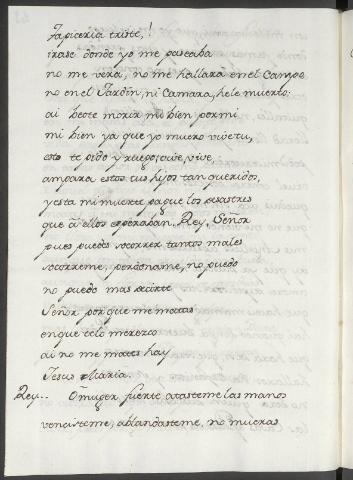 Tapiceria triste,!
irase donde yo me paseaba
no me vera, no me hallara en el Campo
no en el Jardin, ni Camara, hele muerto:
ai heste morir mi bien por mi
mi bien ya que yo muero vive tu,
esto te pido y ruego, vive, vive,
ampara estos tus hijos tan queridos,
y esta mi muerte pague los desastres
que a ellos esperaban. Rey, Señor
pues puedes socorrer tantos males
socorreme, perdoname, no puedo
no puedo mas decirte
Señor por que me matas
en que te lo merezco
ai no me mates hay
Jesus Maria.
Rey.. O muger fuerte atasteme las manos
vencisteme, ablandasteme, no mueras